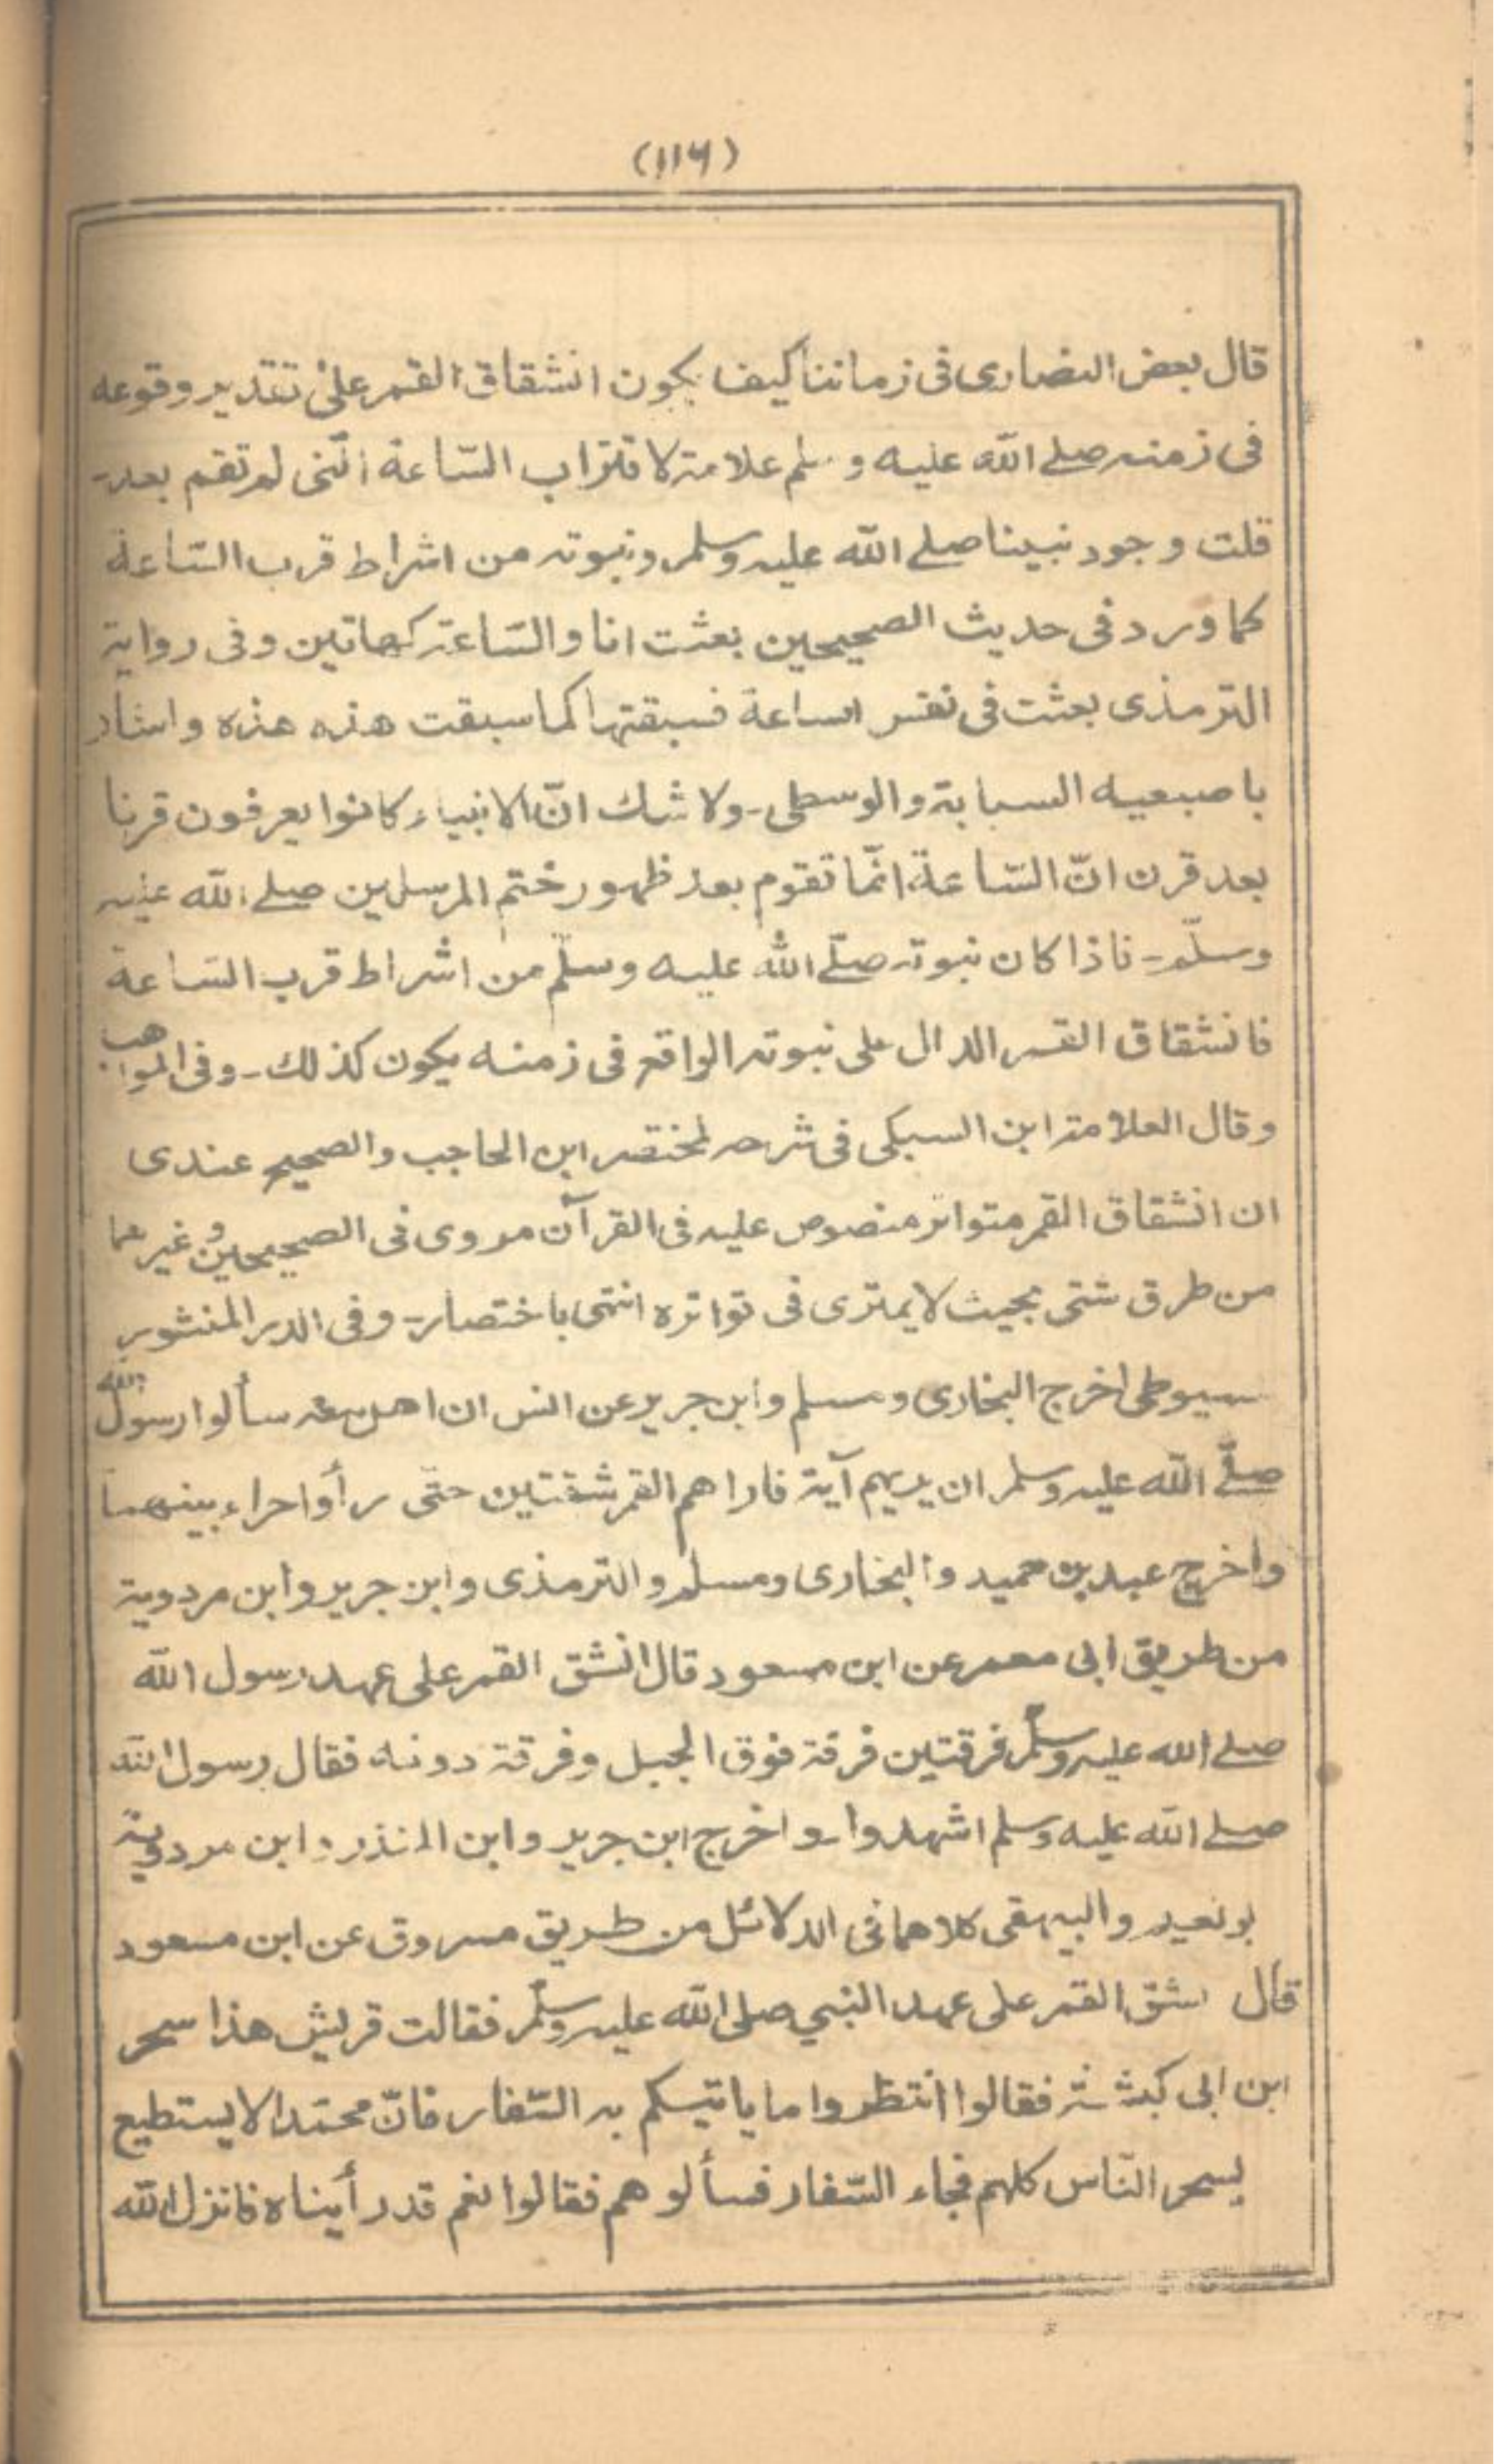 (۱۱۶)
قال بعض النصاری فی زماننا کیف یکون انشقاق القمر علیٰ تقدیر وقوعه
فی زمنہ صلے اللّٰه علیه وسلم علامة لاقتراب السّاعة الّتی لم تقم بعد۔
قلت وجود نبینا صلے اللّٰه علیہ وسلم ونبوتہ من اشراط قرب السّاعة
کما ورد فی حدیث الصحیحین بعثت انا والسّاعة کهاتین وفی روایة
الترمذی بعثت فی نفس الساعة فسبقتها کما سبقت هذه هذه واشار
باصبعیه السبابة والوسطی۔ ولا شك انّ الانبیاء کانوا یعرفون قرنا
بعد قرن انّ السّاعة انّما تقوم بعد ظهور ختم المرسلین صلے اللّٰه علیہ
وسلّم۔ فاذا کان نبوتہ صلّے اللّٰه علیه وسلّم من اشراط قرب السّاعة
فانشقاق القمر الدال علی نبوتہ الواقع فی زمنه یکون کذلك۔ وفی المواهب
وقال العلامة ابن السبکی فی شرحہ لمختصر ابن الحاجب والصحیح عندی
ان انشقاق القمر متواتر منصوص علیہ فی القرآن مروی فی الصحیحین وغیرهما
من طرق شتی بحیث لا یمتری فی تواتره انتهی باختصار۔ وفی الدر المنثور
سیوطی اخرج البخاری ومسلم وابن جریر عن انس ان اهل مکة سألوا رسول اللّٰه
صلّے اللّٰه علیہ وسلم ان یریهم آیة فاراهم القمر شقتین حتّی رأوا حراء بینهما
واخرج عبد بن حمید والبخاری ومسلم والترمذی وابن جریر وابن مردویة
من طریق ابی معمر عن ابن مسعود قال انشق القمر علی عهد رسول اللّٰه
صلے اللّٰه علیہ وسلّم فرقتین فرقة فوق الجبل وفرقة دونه فقال رسول اللّٰه
صلے اللّٰه علیه وسلم اشهدوا۔ واخرج ابن جریر وابن المنذر وابن مردویة
بو نعیم والبیهقی کلاهما فی الدلائل من طریق مسروق عن ابن مسعود
قال نشق القمر علی عهد النبی صلی اللّٰه علیہ وسلّم فقالت قریش هذا سحر
ابن ابی کبشة فقالوا انتظروا ما یاتیکم به السّفار فانّ محمّدا لا یستطیع
یسحر النّاس کلهم فجاء السّفار فسألوهم فقالوا نعم قد رأیناه فانزل اللّٰه